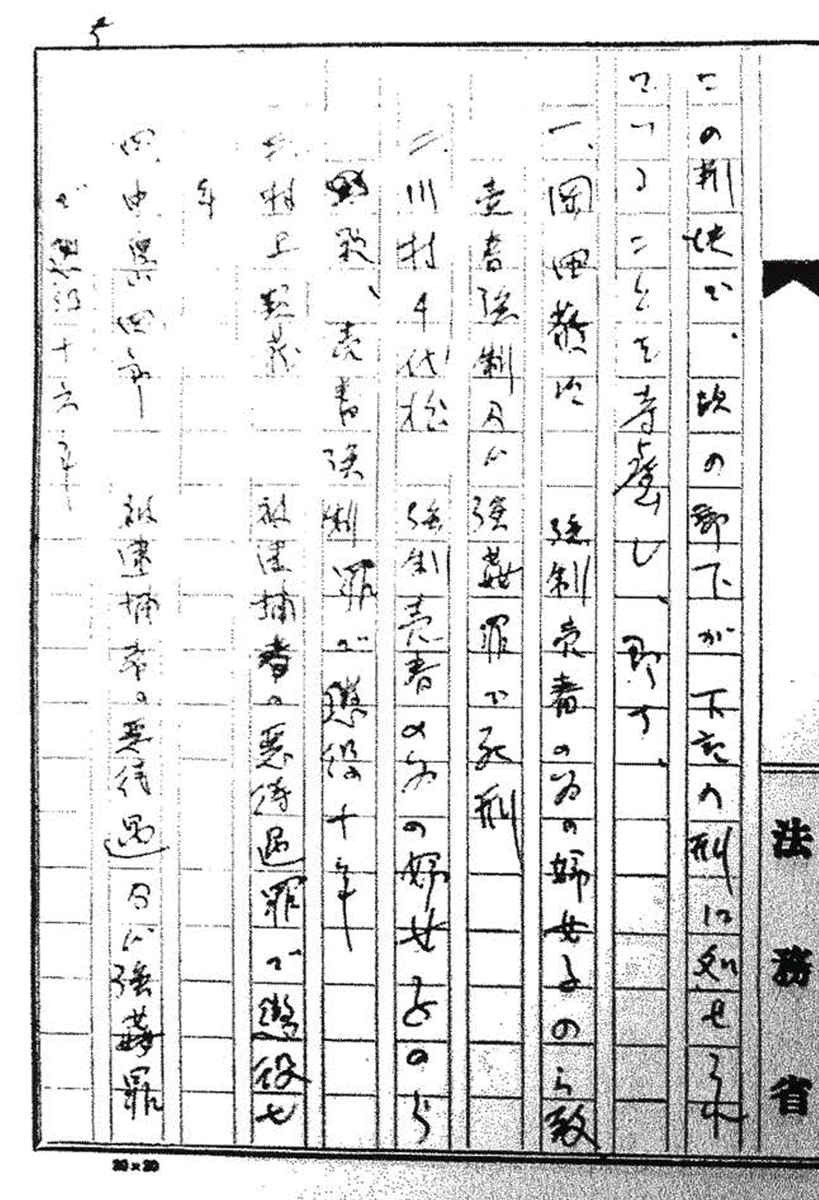 法務省
この判決で、次の部下が下記の刑に処せられ
て
を希望し、即す、
一、岡田慶治 強制売春の為の婦女子のら致
売春強制及び強姦罪で死刑
二、川村千代松 強制売春の為の婦女子のら
致、売春強制罪で懲役十年
三、村上類蔵 被逮捕者の悪待遇罪で懲役七
年
四、中島四郎 被逮捕者の悪待遇及び強姦罪
で懲役十六年
20×20